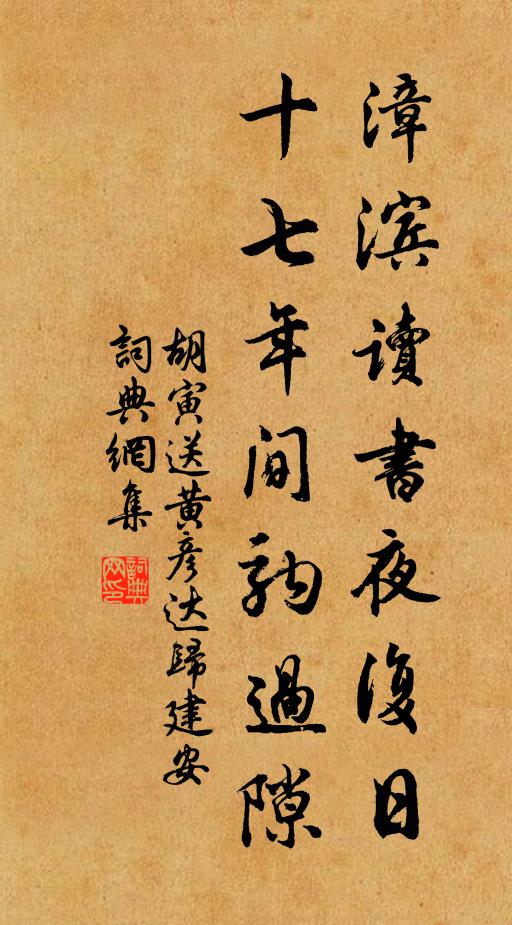 漳滨讀書夜復日
十七年间駒過隙
胡寅送黄彦达歸建安
詞典網集
詞典网印